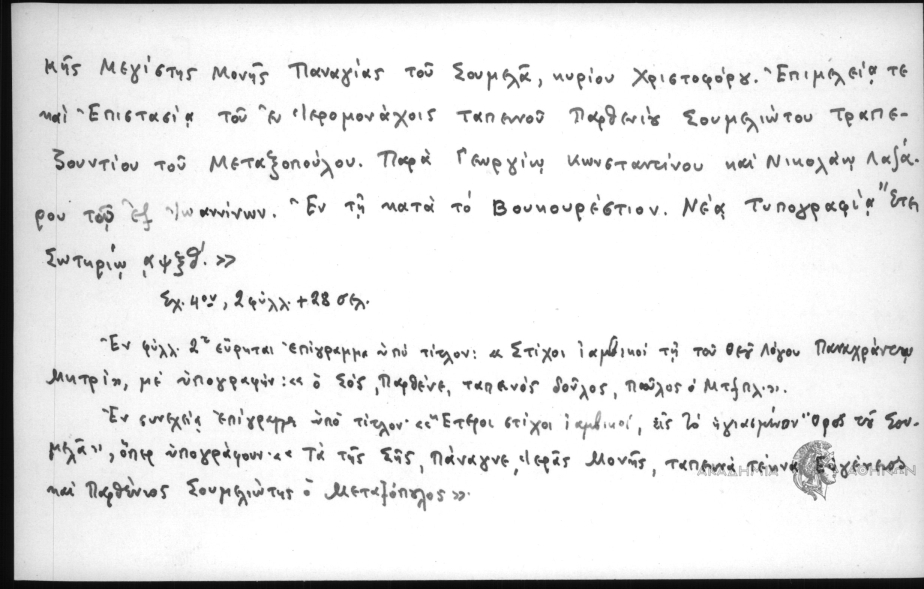 κῆς Μεγίστης Μονῆς Παναγίας τοῦ Σουμελᾶ, κυρίου Χριστοφόρου. Ἐπιμελείᾳ τε
καὶ Ἐπιστασίᾳ τοῦ ἐν Ἱερομονάχοις ταπεινοῦ Παρθενίου Σουμελιώτου Τραπε-
ζουντίου τοῦ Μεταξοπούλου. Παρὰ Γεωργίῳ Κωνσταντίνου καὶ Νικολάῳ Λαζά-
ρου τοῦ ἐξ Ἰωαννίνων. Ἐν τῇ κατὰ τὸ Βουκουρέστιον. Νέᾳ Τυπογραφίᾳ Ἔτει
Σωτηρίῳ αψξθ΄.»
Σχ. 4ον, 2 φύλλ. + 28 σελ.
Ἐν φύλλ. 2ῳ εὕρηται ἐπίγραμμα ὑπὸ τίτλον: « Στίχοι ἰαμβικοί τῇ τοῦ Θεοῦ Λόγου Παναχράντῳ
Μητρί», μὲ ὑπογραφήν: « ὁ Σός, Παρθένε, ταπεινὸς δοῦλος, Παῦλος ὁ Μτξπλ.».
Ἐν συνεχείᾳ ἐπίγραμμα ὑπὸ τίτλον· «Ἕτεροι στίχοι ἰαμβικοί, εἰς τὸ ἡγιασμένον Ὄρος τοῦ Σου-
μελᾶ», ὅπερ ὑπογράφουν· « Τὰ τῆς Σῆς, Πάναγνε, Ἱερᾶς Μονῆς, ταπεινὰ τέκνα Εὐγένειος
καὶ Παρθένιος Σουμελιώτης ὁ Μεταξόπουλος».
ΑΚΑΔΗΜΙΑ ΑΘΗΝΩΝ